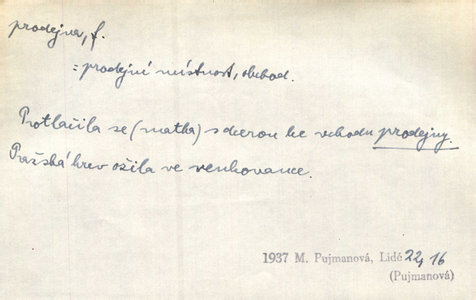 prodejna, f.
= prodejní místnost, obchod.
Protlačila se (matka) s dcerou ke vchodu prodejny.
Pražská krev ožila ve venkovance.
1937 M. Pujmanová, Lidé 22, 16
(Pujmanová)